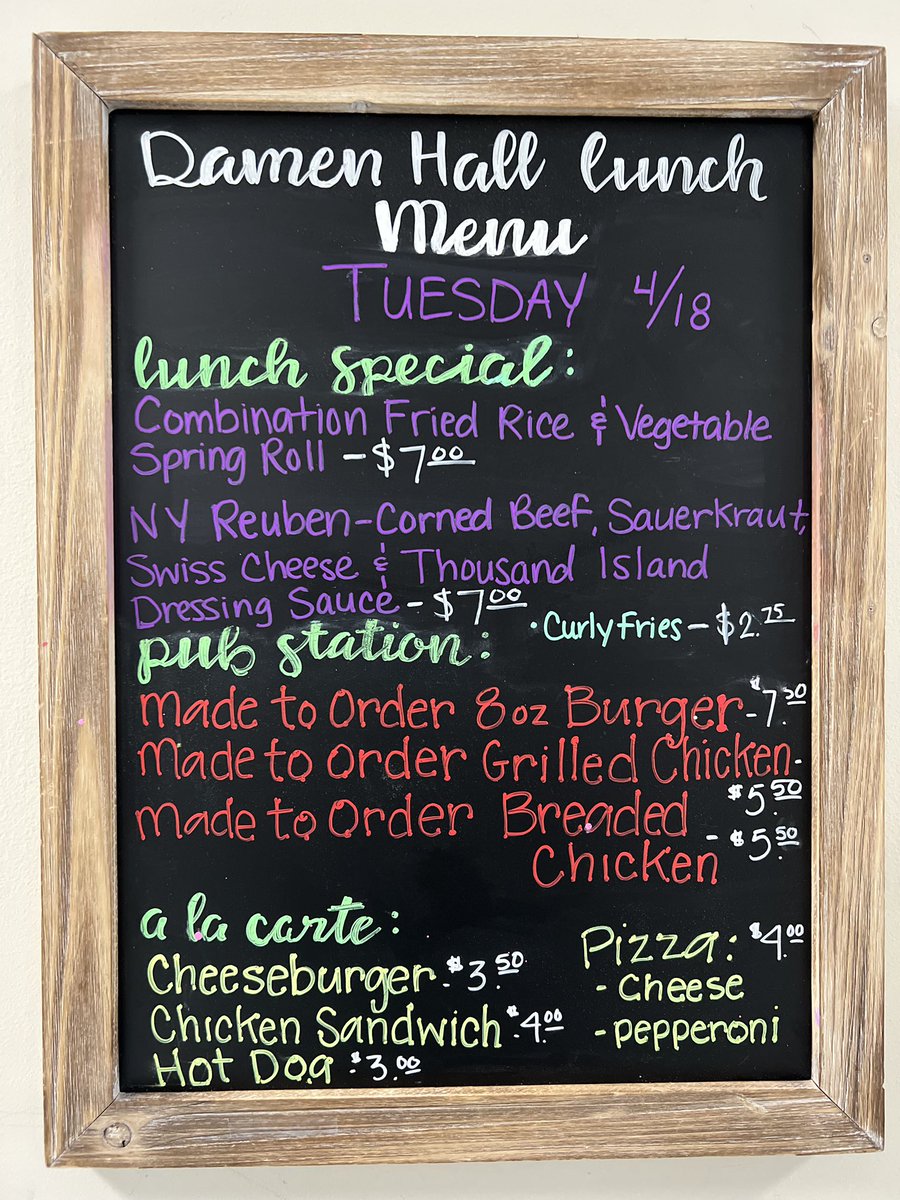 Damen Hall lunch
Menu
TUESDAY 4/18
lunch special:
Combination Fried Rice & Vegetable
Spring Roll - $7.00
NY Reuben-Corned Beef, Sauerkraut,
Swiss Cheese & Thousand Island
Dressing Sauce - $7.00
• Curly Fries - $2.75
pub station:
Made to Order 8oz Burger - $7.50
Made to Order Grilled Chicken -
$5.50
Made to Order Breaded
Chicken - $5.50
a la carte:
Cheeseburger - $3.50
Chicken Sandwich - $4.00
Hot Dog - $3.00
Pizza: $4.00
- Cheese
- pepperoni